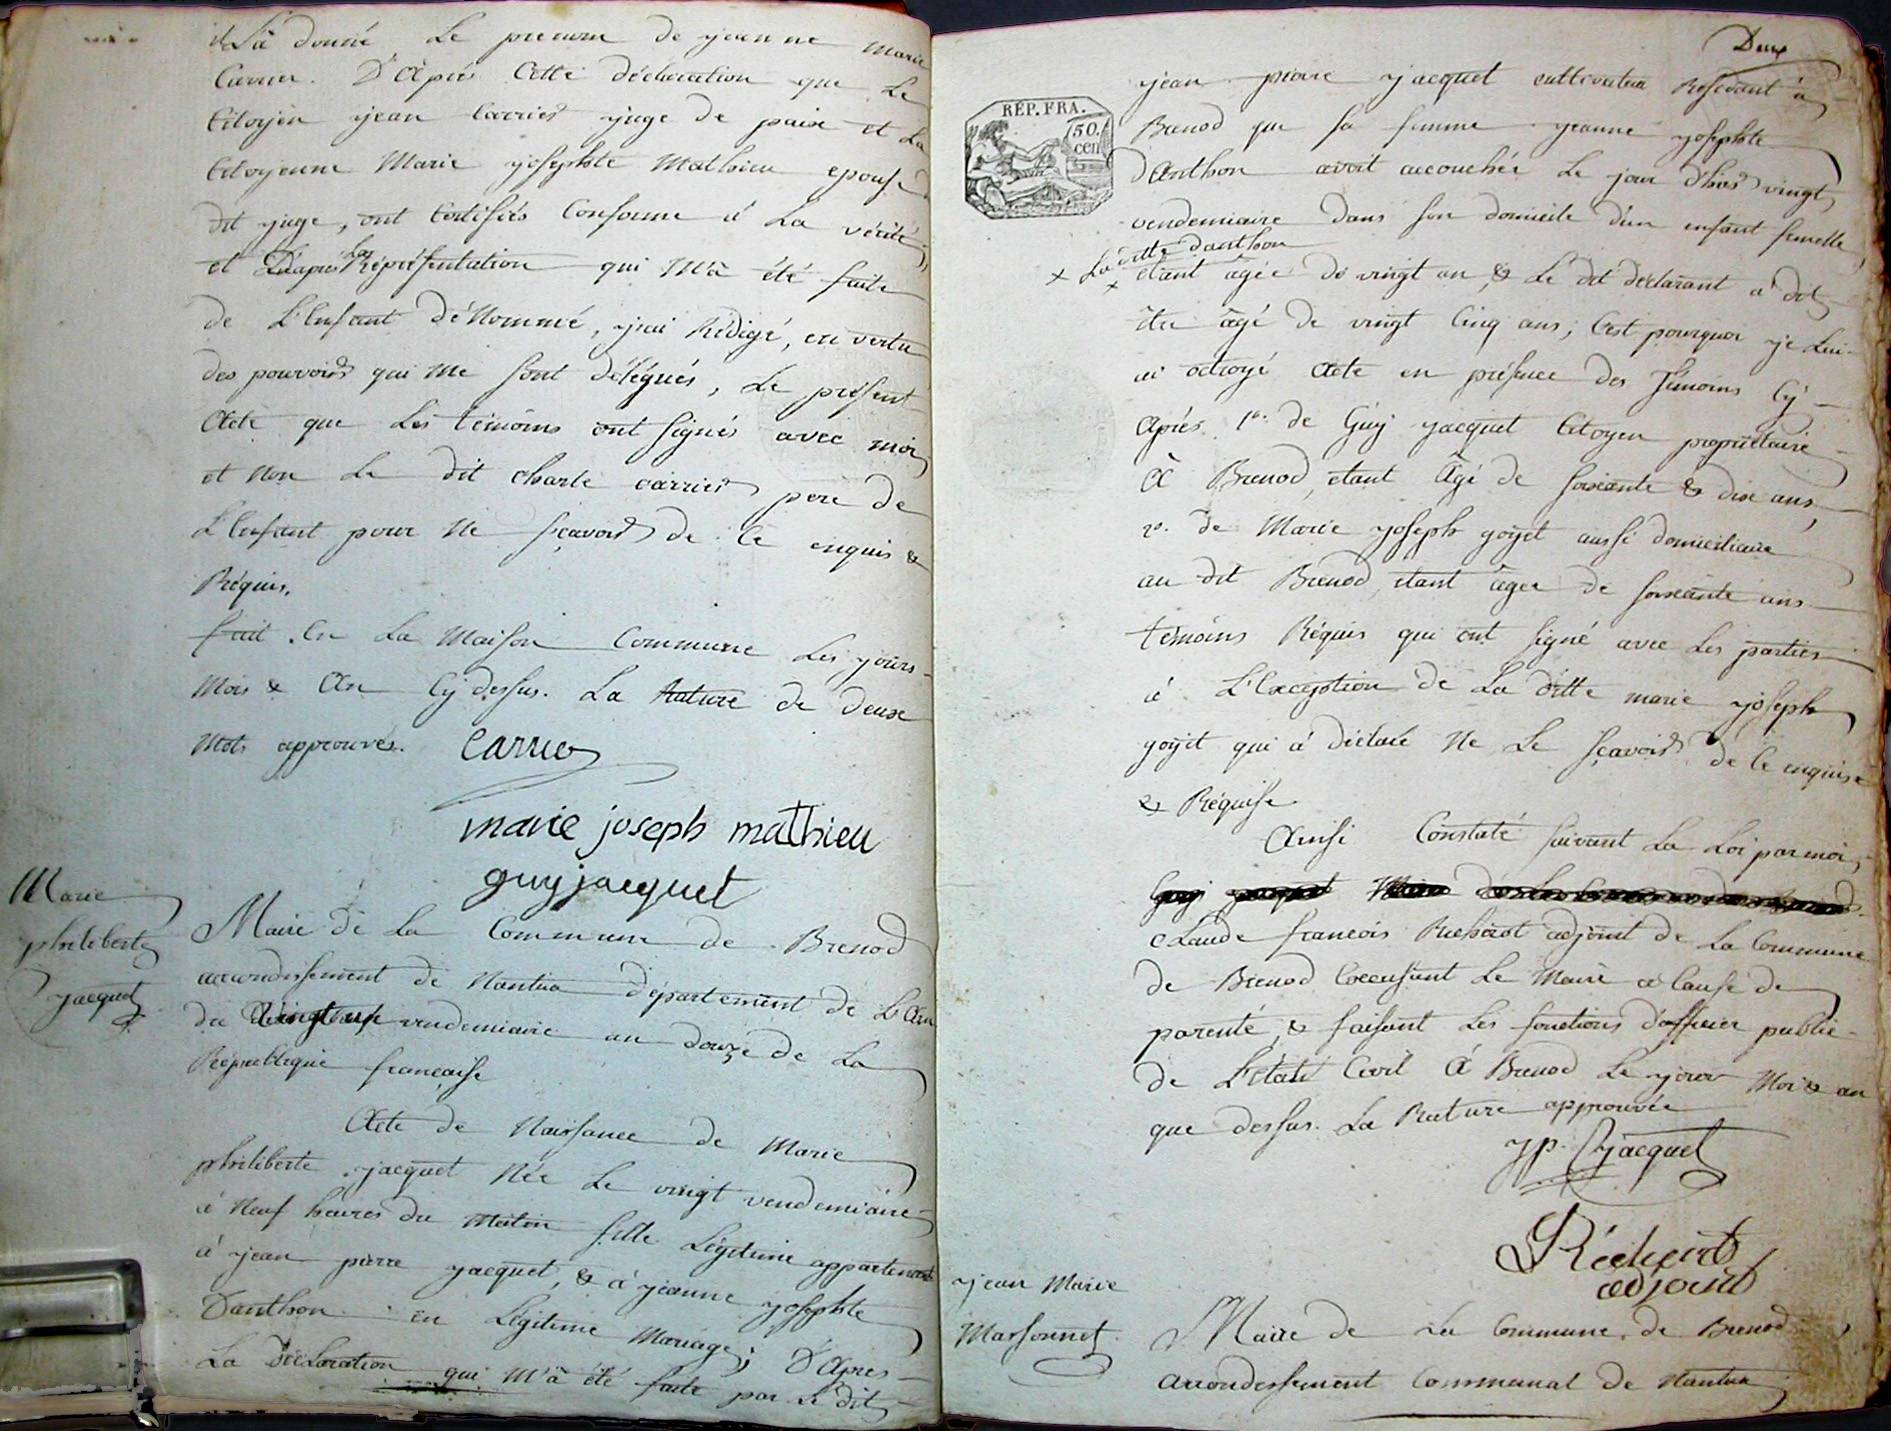 il L'a donné, Le prenom de jeanne Marie
Carrier. D'Après Cette déclaration que Le
Citoyen jean Carrier juge de paix et La
Citoyenne Marie josephte Mathieu epouse
dit juge, ont Certifiés Conforme à La vérité,
et D'après La Réprésentation qui M'à été faite
de L'Enfant dénommé, j'ai Rédigé, en vertu
des pouvoirs qui me sont délégués, Le présent
Acte que Les témoins ont signés avec moi
et non Le dit charle carrier pere de
L'Enfant pour Ne sçavoir de Ce enquis &
Réquis.
fait. En La Maison Commune Les jours
Mois & An Cy dessus. La Rature de deux
Mots approuvés. Carrier
marie joseph mathieu
guy jacquet
Marie
philiberte
jacquet
Maire de La Commune de Brenod
arrondissement de Nantua département de L'Ain
du vingt un vendemiaire an douze de La
République française
Acte de Naissance de Marie
philiberte jacquet Née Le vingt vendemiaire
à Neuf heures du Matin fille Légitime appartenant
à jean pierre jacquet, & à jeanne josephte
Danthon en Légitime Mariage; D'Après
La Déclaration qui M'à été faite par Le dit
Deux
RÉP. FRA.
50.
cen
jean pierre jacquet cultivateur Résidant à
Brenod que sa femme jeanne josephte
D'Anthon avoit accouchée Le jour d'hier vingt
vendemiaire dans son domicile d'un enfant femelle
x La ditte danthon
x étant âgée de vingt an, & Le dit déclarant a dit
être âgé de vingt Cinq ans; C'est pourquoi je Lui
ai octroyé Acte en présence des Témoins Cy
Après 1o. de Guy jacquet Citoyen propriétaire
À Brenod, etant Âgé de soixante & dix ans,
2o. de Marie joseph goyet aussi domiciliaire
au dit Brenod, etant âgée de soixante ans
témoins Réquis qui ont signé avec Les parties
à L'Exception de La ditte marie joseph
goyet qui à déclaré Ne Le sçavoir de Ce enquise
& Réquise
Ainsi Constaté suivant La Loi par moi
Claude françois Adjoint de La Commune
de Brenod Excusant Le Maire à Cause de
parenté, & faisant Les fonctions d'officier public
de L'état Civil À Brenod Le jour Mois & an
que dessus. La Rature approuvée
jp. jacquet
Réchérot
adjoint
jean Marie
Marsonnet
Maire de La Commune de Brenod
arrondissement Communal de Nantua